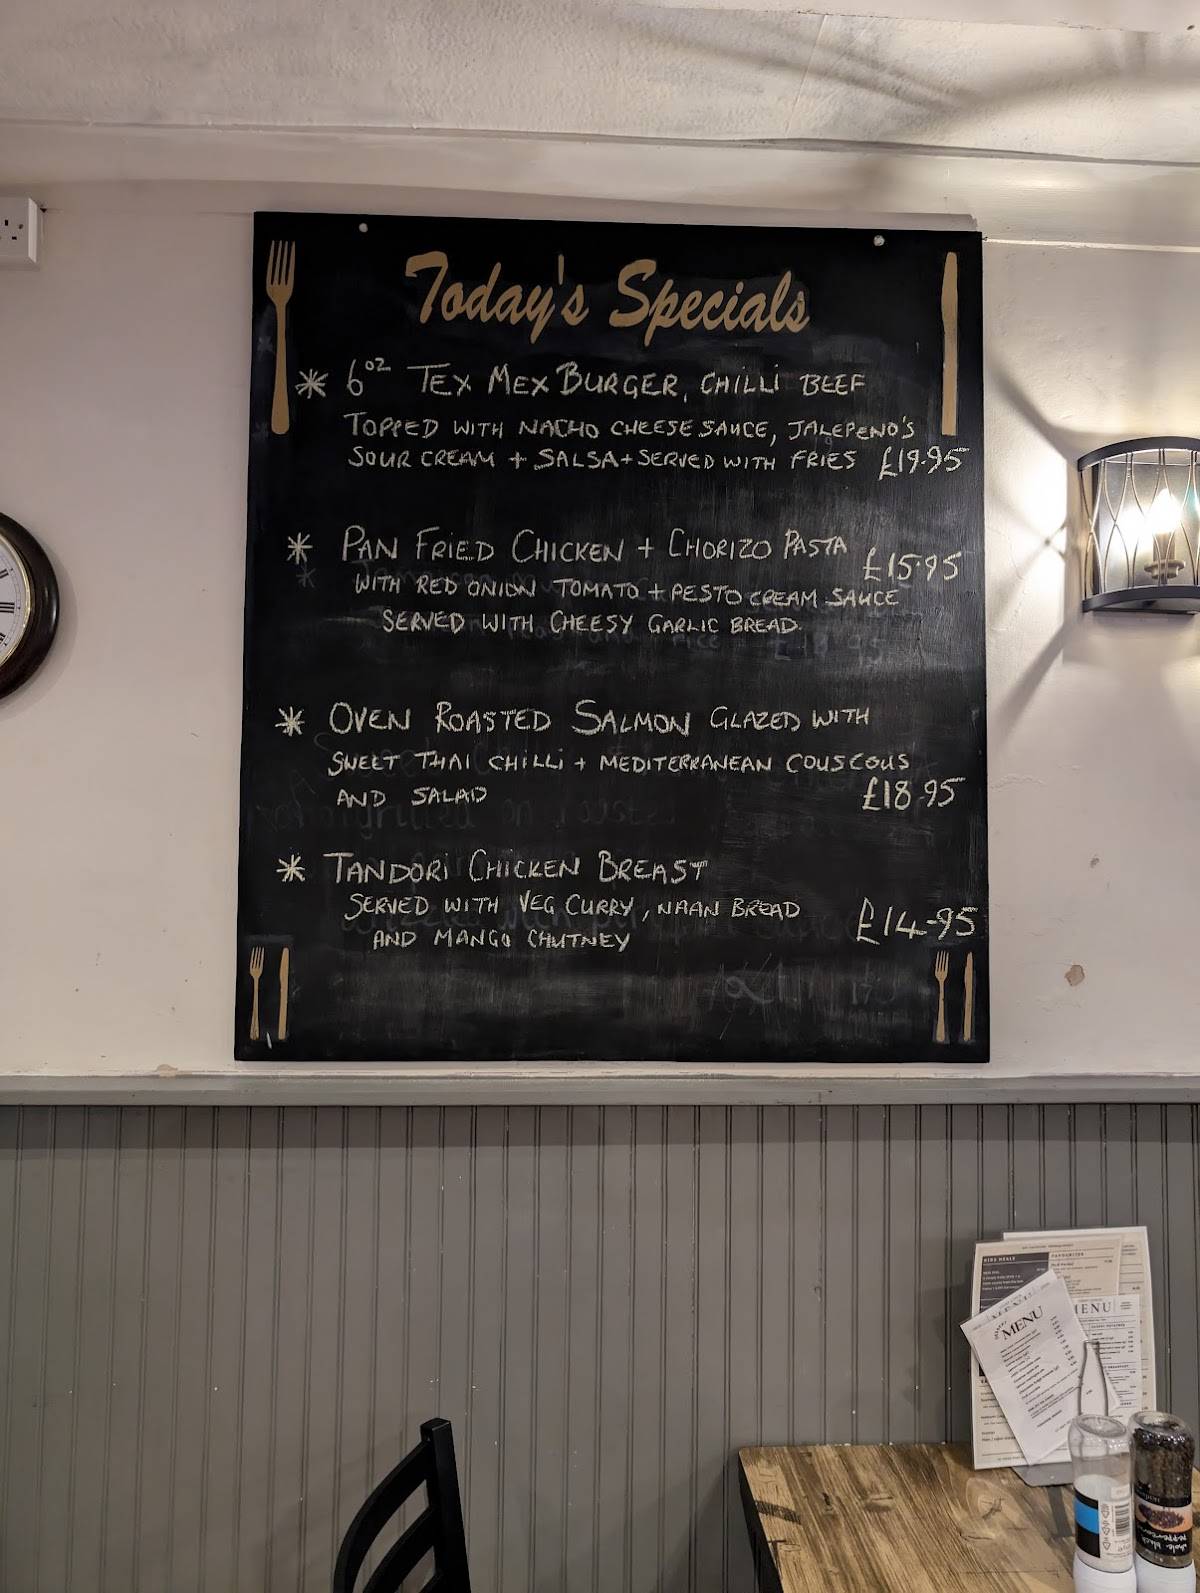 Today's Specials
* 6oz TEX MEX BURGER, CHILLI BEEF
TOPPED WITH NACHO CHEESE SAUCE, JALEPENO'S
SOUR CREAM + SALSA + SERVED WITH FRIES £19.95
* PAN FRIED CHICKEN + CHORIZO PASTA £15.95
WITH RED ONION TOMATO + PESTO CREAM SAUCE
SERVED WITH CHEESY GARLIC BREAD.
* OVEN ROASTED SALMON GLAZED WITH
SWEET THAI CHILLI + MEDITERRANEAN COUSCOUS
AND SALAD £18.95
* TANDORI CHICKEN BREAST
SERVED WITH VEG CURRY, NAAN BREAD £14-95
AND MANGO CHUTNEY
KIDS MEALS
FAVOURITES
MENU
MENU